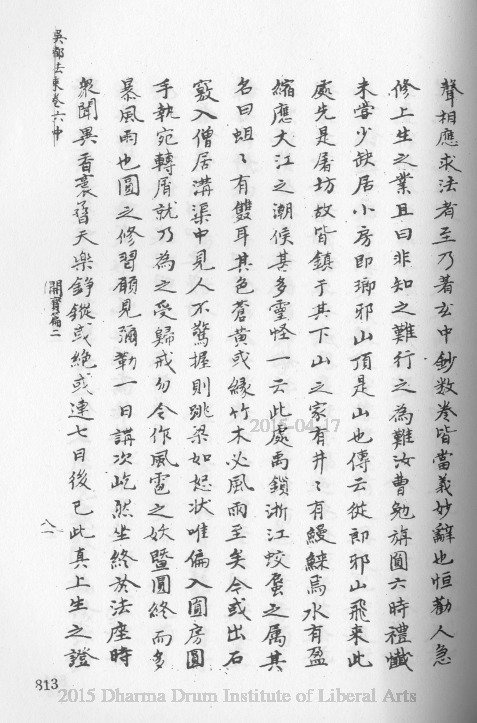 聲相應求法者至乃著玄中鈔数卷皆當義妙辭也恒勸人急
修上生之業且曰非知之難行之為難汝曹勉旃圓六時禮懺
未嘗少缺居小房即瑯邪山頂是山也傳云從即邪山飛來此
處先是屠坊故皆鎮于其下山之家有井〻有鰻鯠焉水有盈
縮應大江之潮候其多靈怪一云此處禹鎖浙江蛟蜃之属其
名曰蛆〻有雙耳其色蒼黄或緣竹木必風雨至矣令或出石
竅入僧居溝渠中見人不驚握則跳梁如恕狀唯偏入圓房圓
手執宛轉屑就乃為之受歸戒勿令作風雹之妖暨圓終而多
暴風雨也圓之修習願見彌勒一日講次屹然坐終於法座時
衆聞異香裛㬱天樂錚鏦或絶或連七日後已此真上生之證
吳都法乘卷六中
開寶篇二
八一
813
2015-04-17
2015 Dharma Drum Institute of Liberal Arts